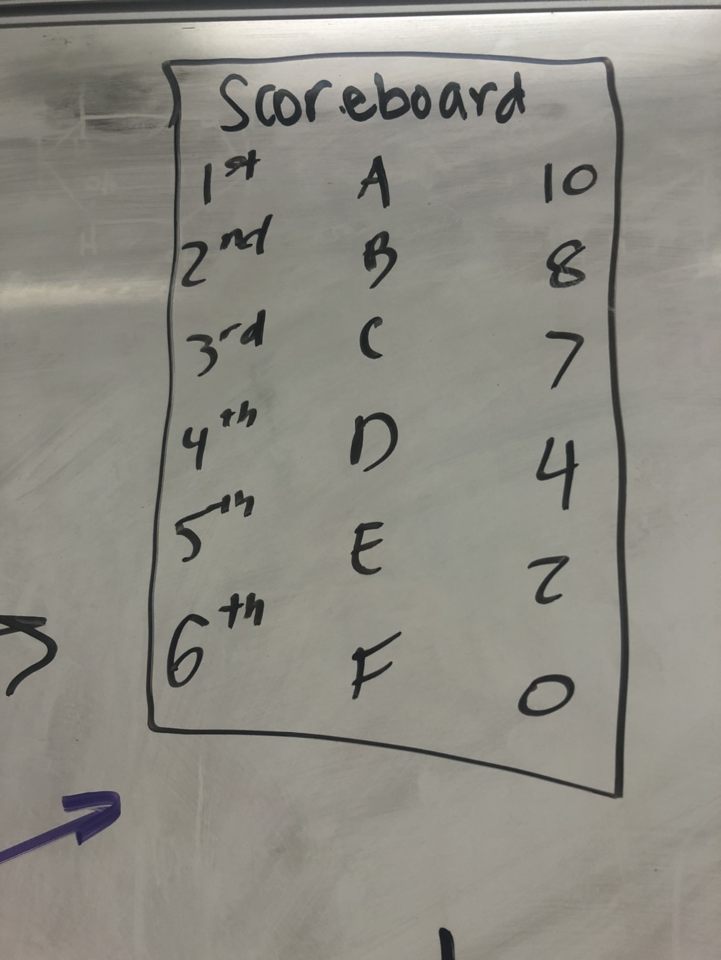 Scoreboard
1st A 10
2nd B 8
3rd C 7
4th D 4
5th E 2
6th F 0